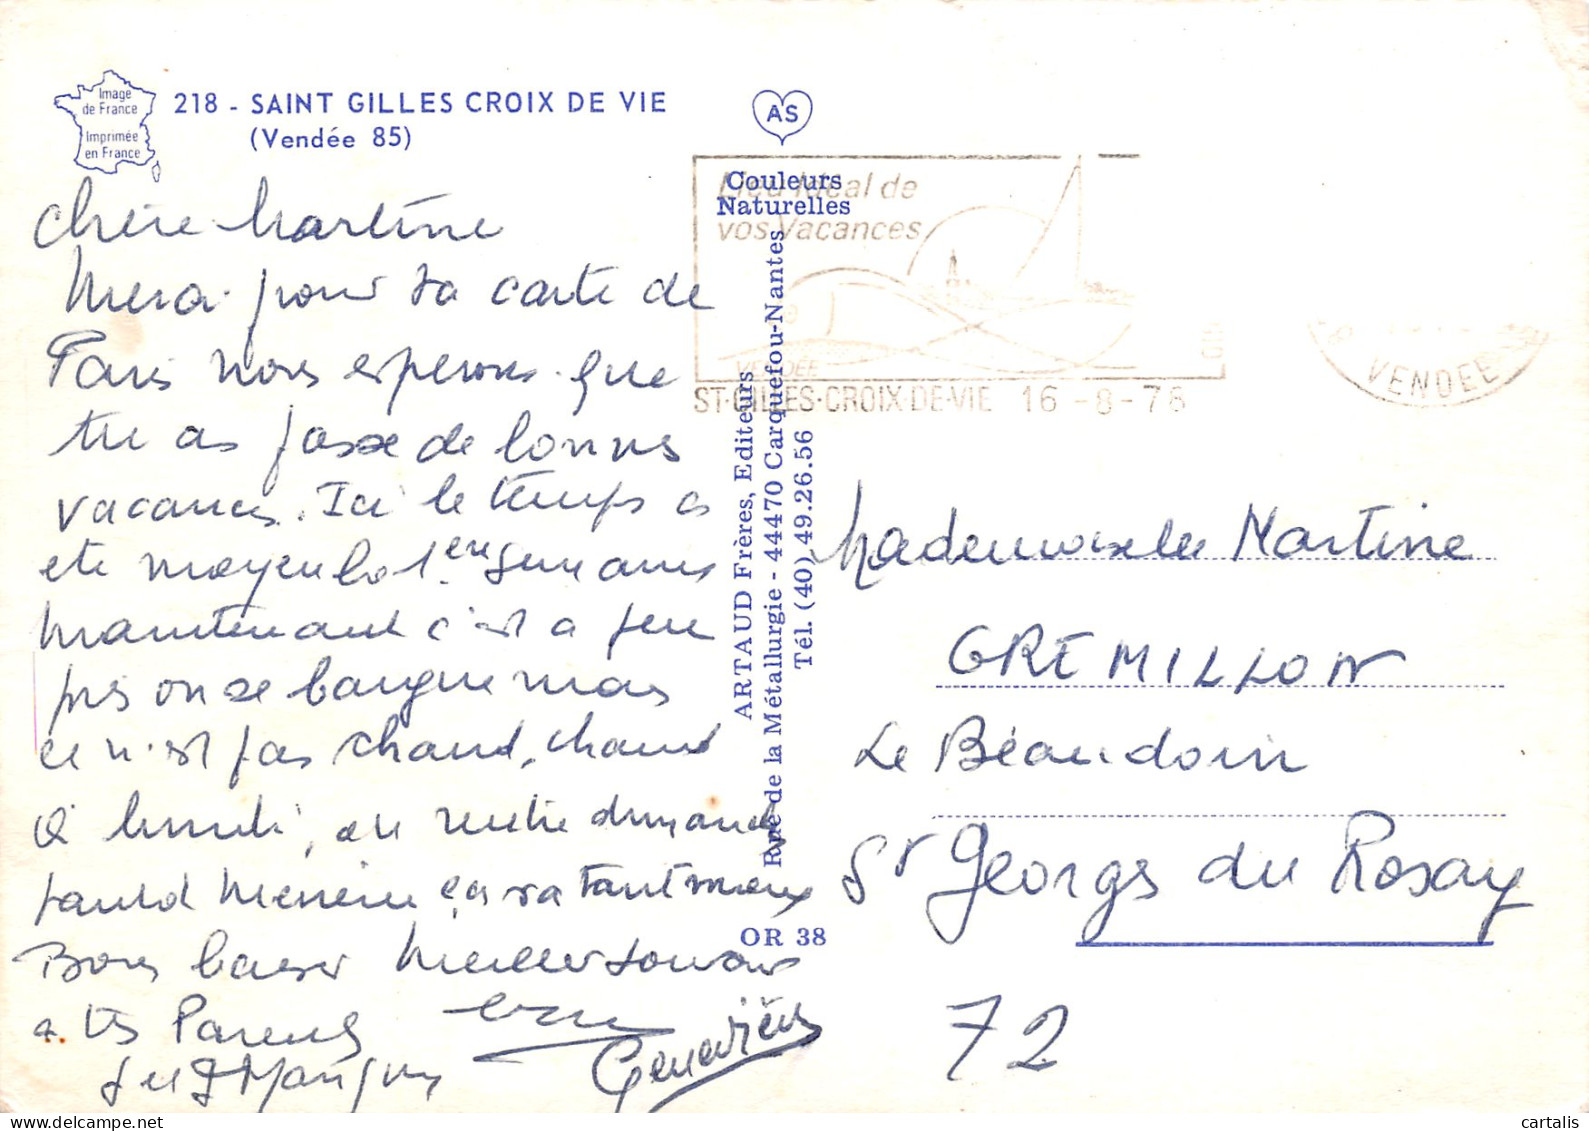 Image
de France
Imprimée
en France
218 - SAINT GILLES CROIX DE VIE
(Vendée 85)
AS
Couleurs
Naturelles
Lieu Idéal de
vos Vacances
VENDÉE
ST-GILLES-CROIX-DE-VIE 16 -8-76
VENDEE
ARTAUD Frères, Editeurs
Rue de la Métallurgie - 44470 Carquefou-Nantes
Tél. (40) 49.26.56
OR 38
Chère Martine
Merci pour ta carte de
Paris nous esperons que
tu as passe de bonnes
vacances. Ici le temps a
ete moyen la 1ere semaine
maintenant c'est a peu
pres on se baigne mais
ce n'est pas chaud, chaud
a lundi, on rentre dimanche
tantot ça va tant mieux
Bons baiser Meilleur souvenir
a tes Parents
Geneviève
Mademoiselle Martine
GREMILLON
Le Béaudoin
St Georges du Rosay
72
cartalis